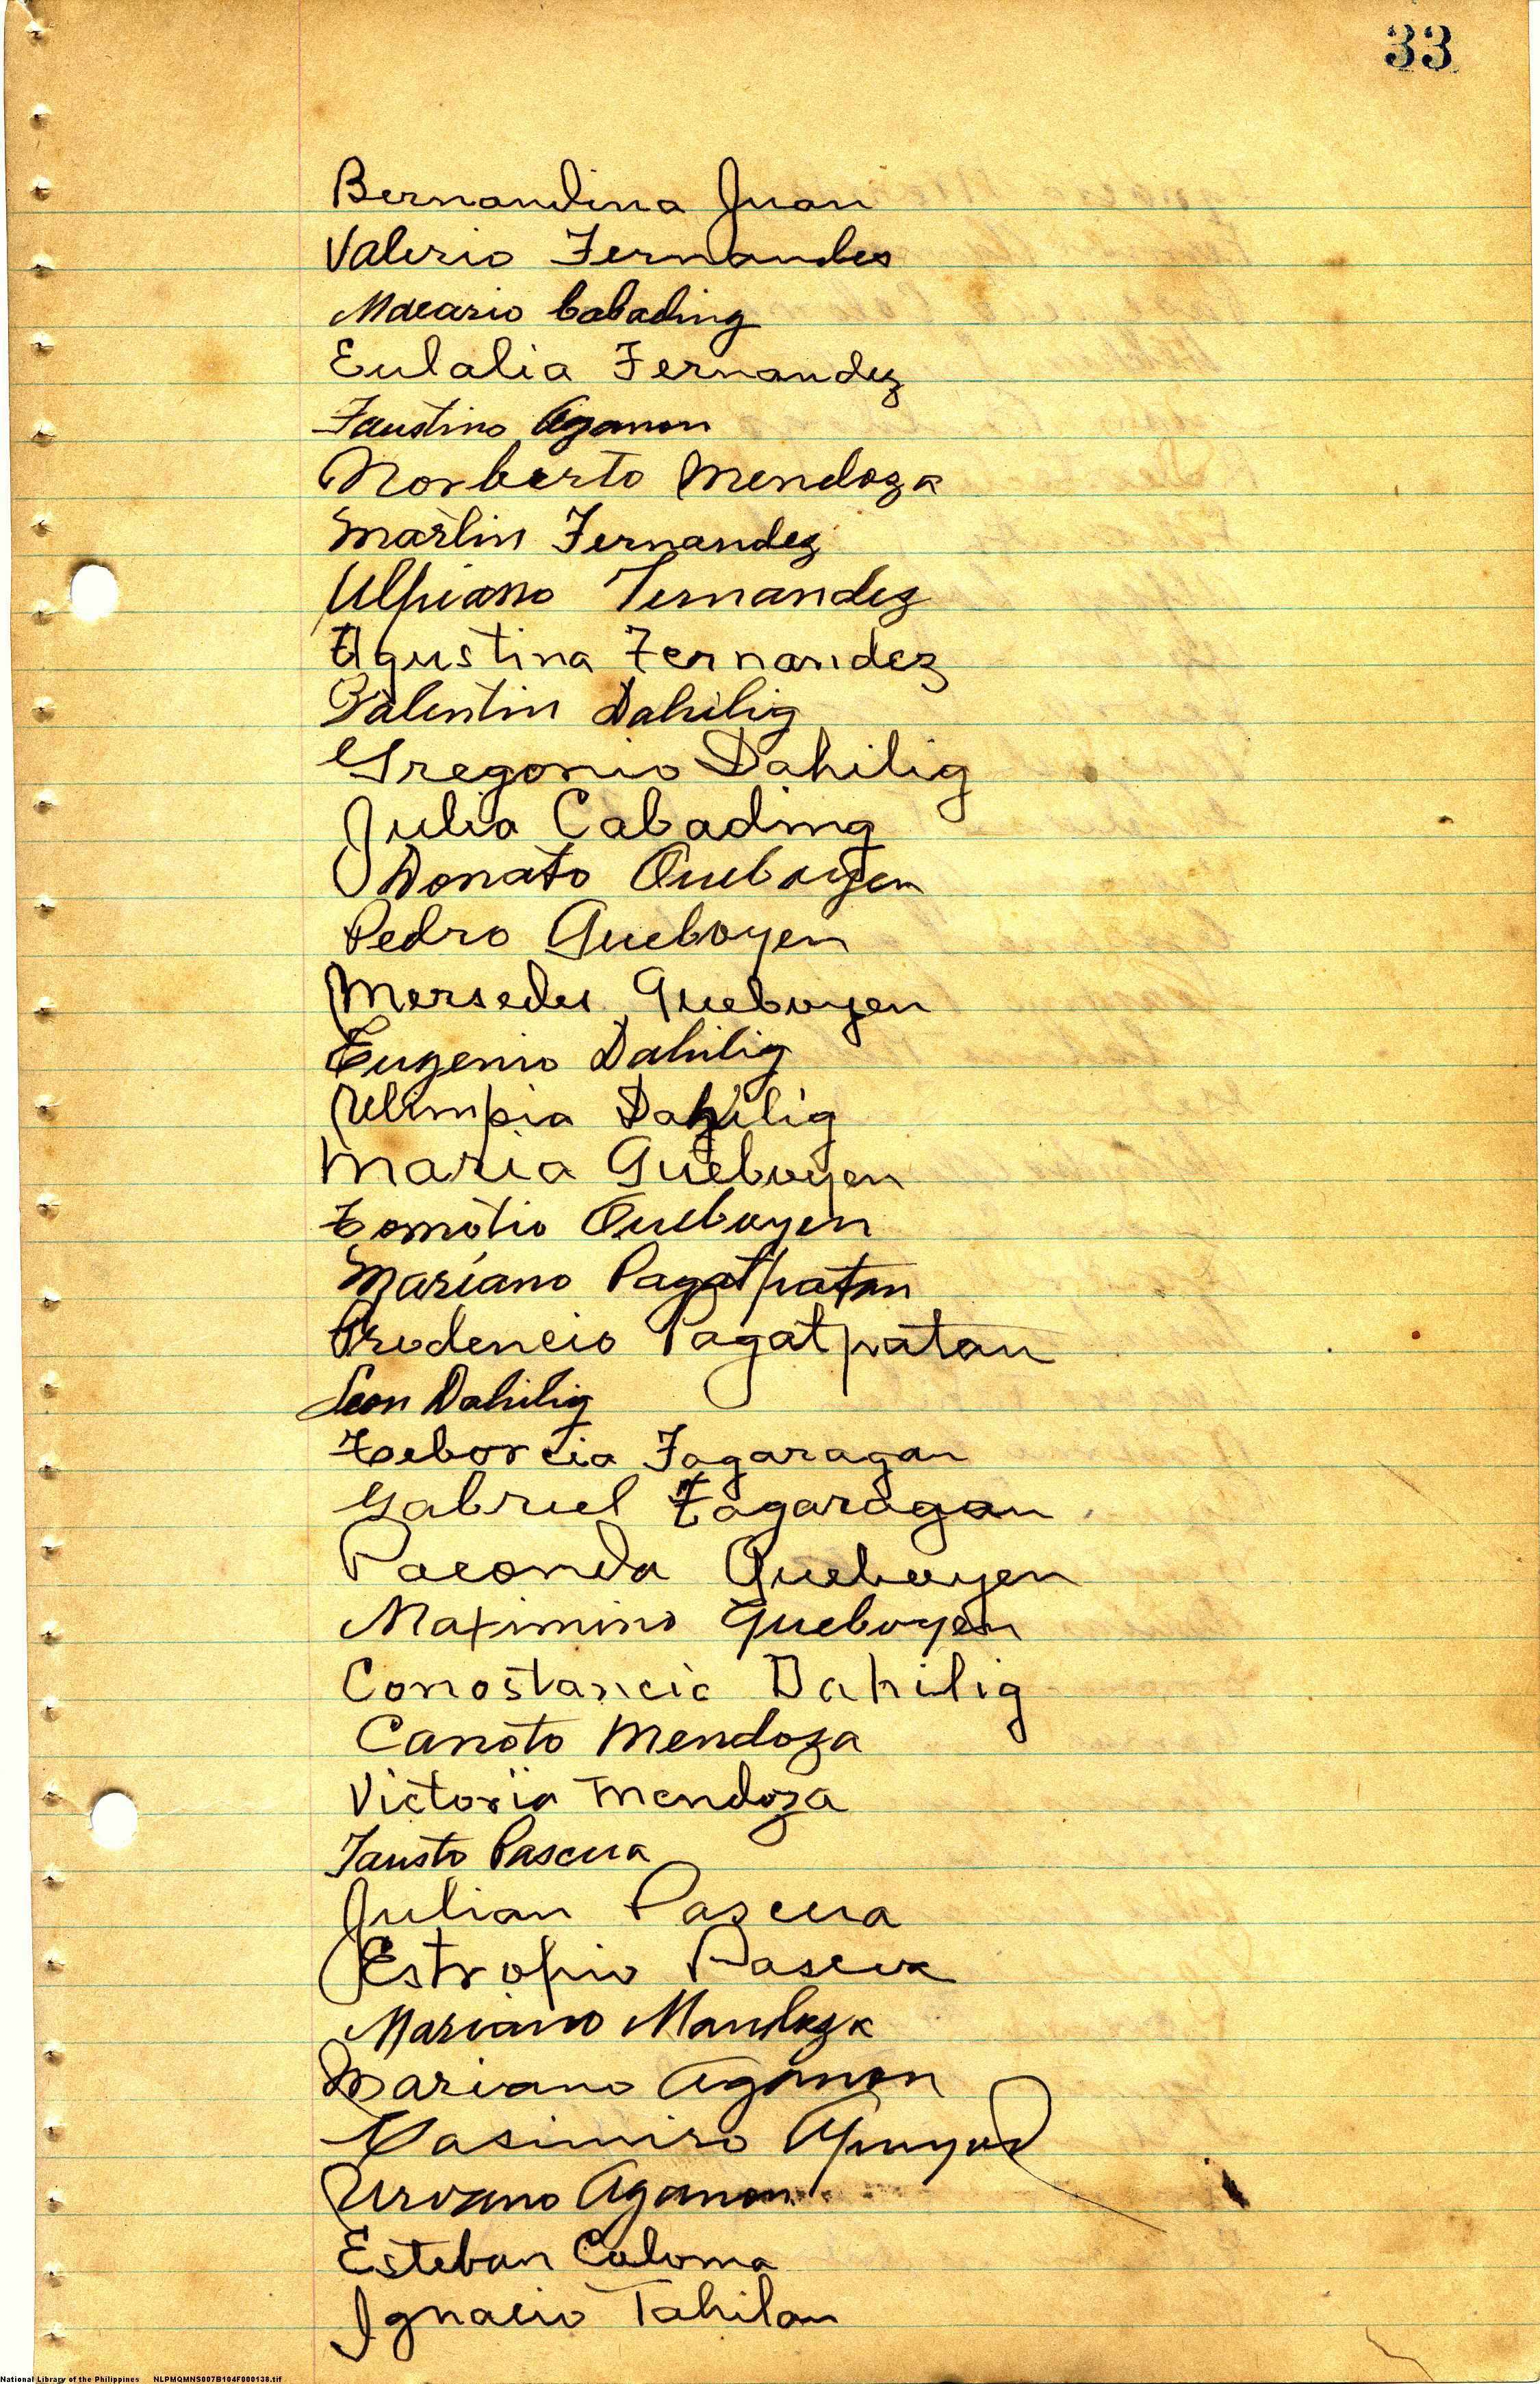 33
Bernandina Juan
Valerio Fernandes
Macario Cabading
Eulalia Fernandez
Faustino Aganon
Norberto Mendoza
Martin Fernandez
Ulpiano Fernandez
Agustina Fernandez
Valentin Dahilig
Gregorio Dahilig
Julia Cabading
Donato Queboyen
Pedro Queboyen
Mersedes Queboyen
Eugenio Dahilig
Ulimpia Dahilig
Maria Queboyen
Tomotio Queboyen
Mariano Pagatpatan
Prodencio Pagatpatan
Leon Dahilig
Teborcia Tagaragan
Gabriel Tagaragan
Paconda Queboyen
Maximino Queboyen
Conostancia Dahilig
Canoto Mendoza
Victoria Mendoza
Fausto Pascua
Julian Pascua
Estropio Pascua
Mariano Mandoza
Mariano Aganon
Casimiro
Urvano Aganon
Esteban Coloma
Ignacio Tahilan
National Library of the Philippines NLPMQMNS007B104F000138.tif